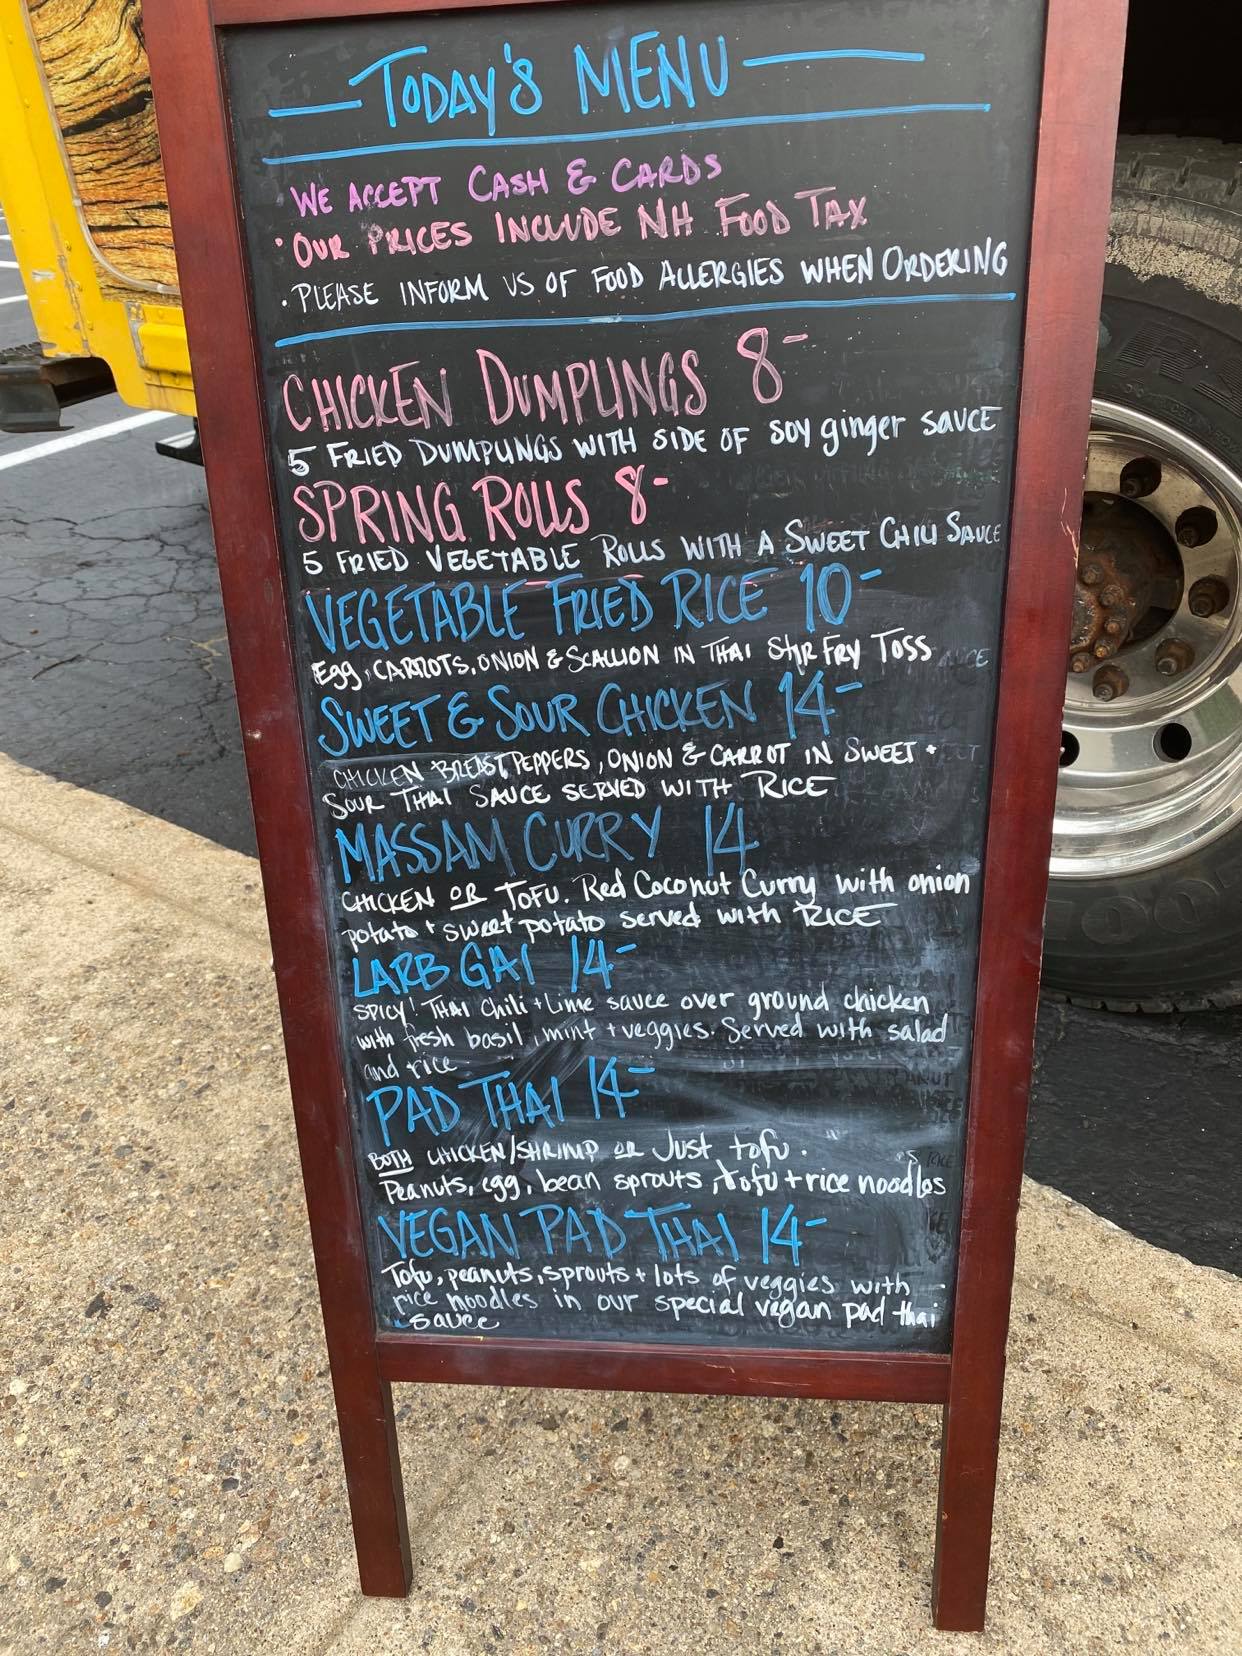 Today's MENU
WE ACCEPT CASH & CARDS
· OUR PRICES INCLUDE NH FOOD TAX
· PLEASE INFORM US OF FOOD ALLERGIES WHEN ORDERING
CHICKEN DUMPLINGS 8-
5 FRIED DUMPLINGS WITH SIDE OF soy ginger sauce
SPRING ROLLS 8-
5 FRIED VEGETABLE ROLLS WITH A SWEET CHILI SAUCE
VEGETABLE FRIED RICE 10-
Egg, CARROTS, ONION & SCALLION IN THAI Stir FRY TOSS
SWEET & SOUR CHICKEN 14-
CHICKEN BREAST PEPPERS, ONION & CARROT IN SWEET +
SOUR THAI SAUCE SERVED WITH RICE
MASSAM CURRY 14
CHICKEN OR TOFU. Red Coconut Curry with onion
potato + sweet potato served with RICE
LARB GAI 14-
SPICY! THAI Chili + Lime sauce over ground chicken
with fresh basil, mint + veggies. Served with salad
and rice
PAD THAI 14-
BOTH CHICKEN/SHRIMP OR Just tofu.
Peanuts, egg, bean sprouts, tofu + rice noodles
VEGAN PAD THAI 14-
Tofu, peanuts, sprouts + lots of veggies with
rice noodles in our special vegan pad thai
sauce